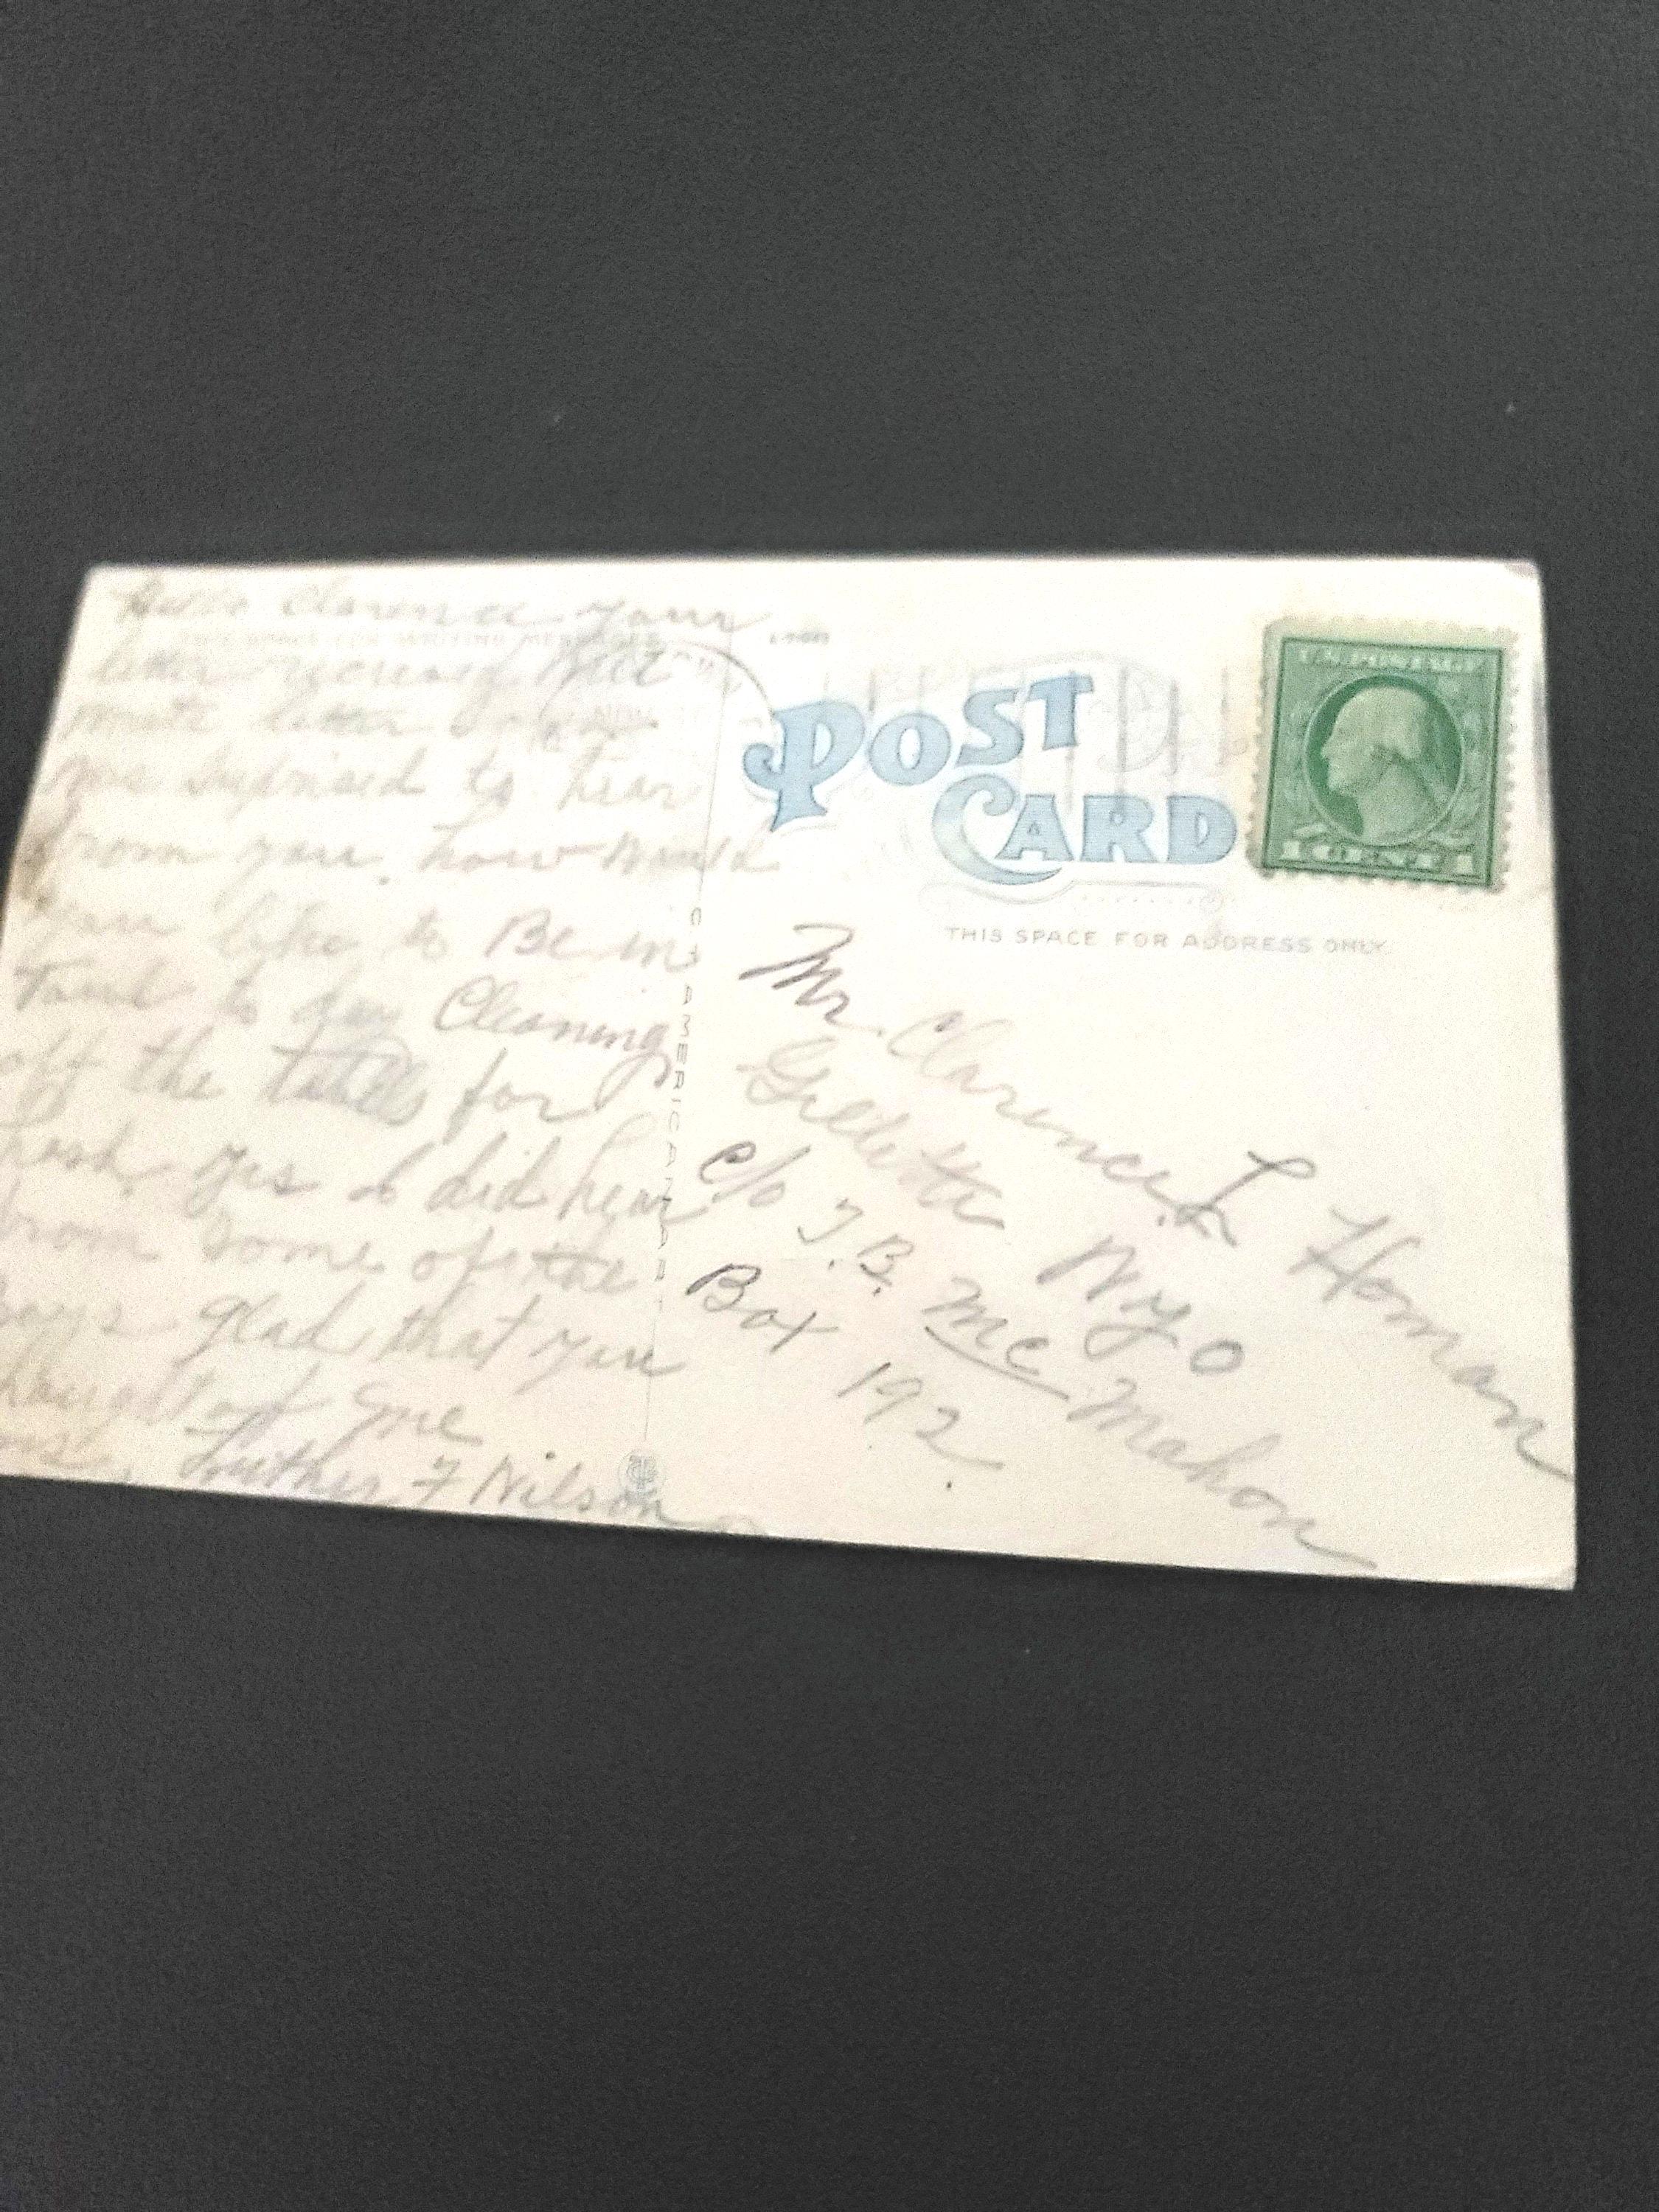 Hello Clarence your
THIS SPACE FOR WRITING MESSAGES
letter recieved But
letter
suprised to hear
from you. how would
you like to Be in
to day Cleaning
off the for
yes I did hear
from some of the
Boys glad that you
thought of me
Luther F Nilson
C.T. AMERICAN ART
POST CARD
U.S. POSTAGE
1 CENT 1
THIS SPACE FOR ADDRESS ONLY.
Mr. Clarence L Homan
Gillette Wyo
c/o J.B. McMahon
Box 192.